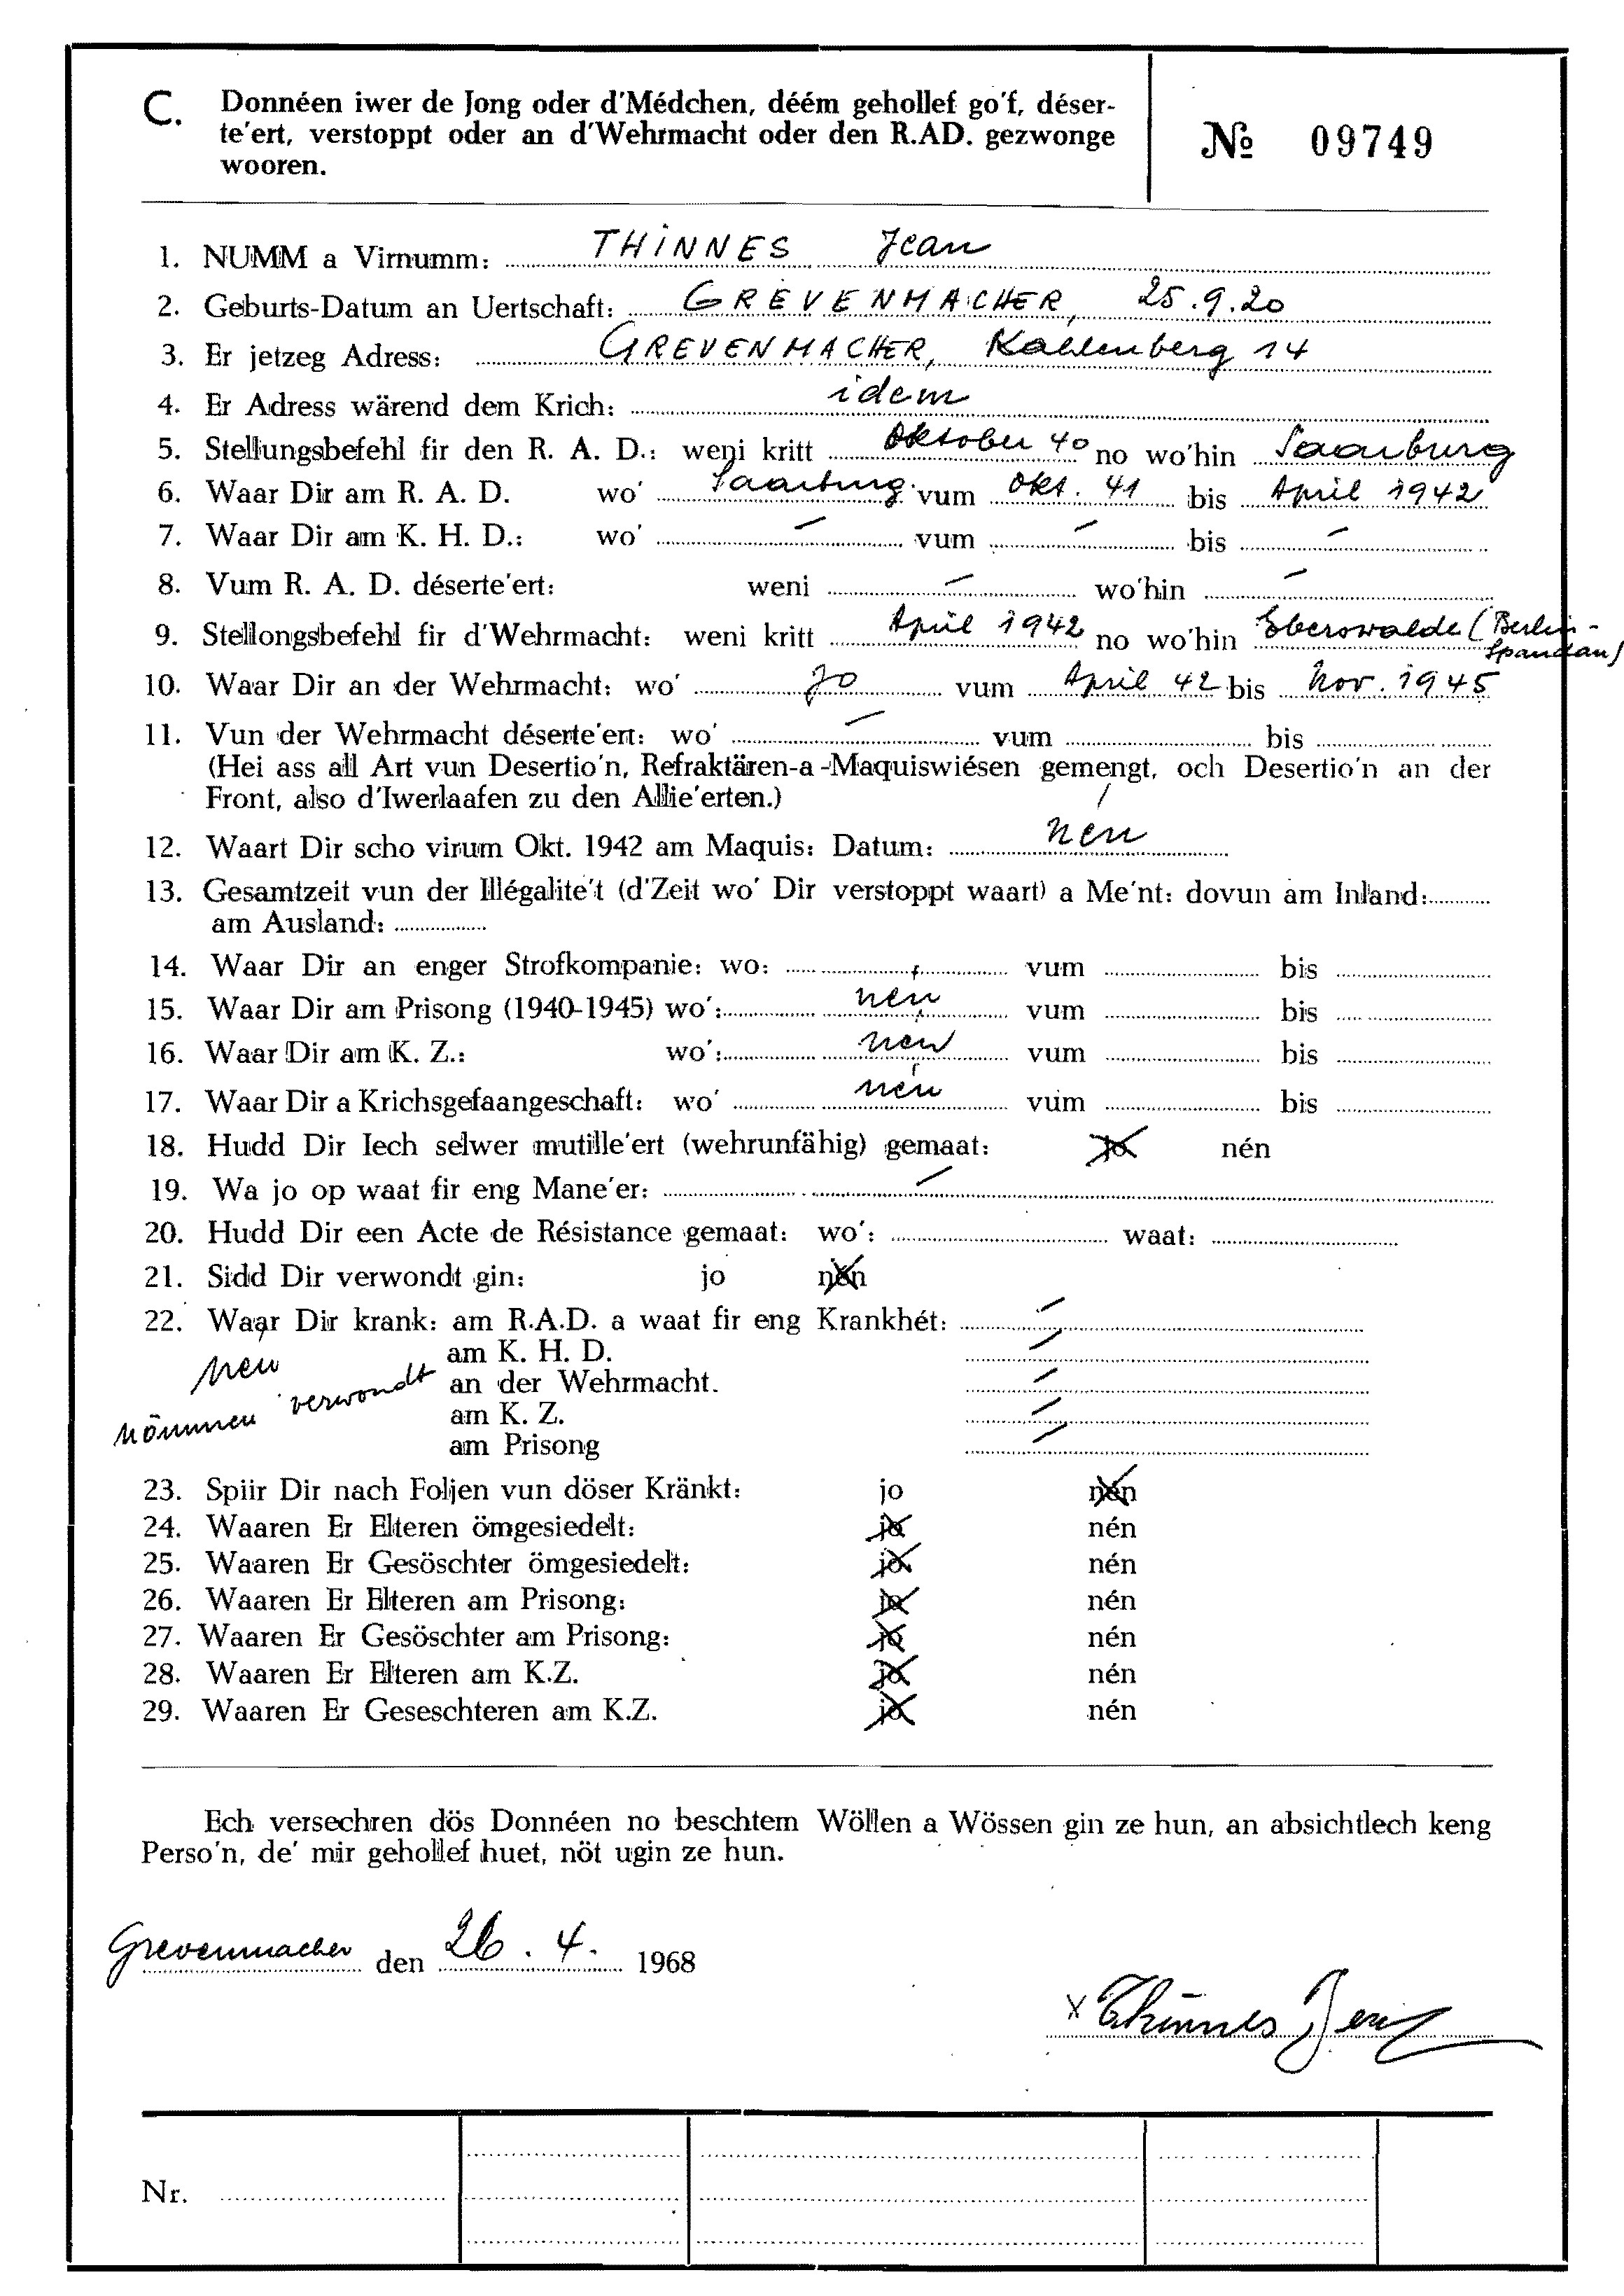 C. Donnéen iwer de Jong oder d'Médchen, déém gehollef go'f, déser-
te'ert, verstoppt oder an d'Wehrmacht oder den R.AD. gezwonge
wooren.
№ 09749
1. NUMM a Virnumm: THiNNES Jean
2. Geburts-Datum an Uertschaft: GREVENMACHER, 25.9.20
3. Er jetzeg Adress: GREVENMACHER, Kahlenberg 14
4. Er Adress wärend dem Krich: idem
5. Stellungsbefehl fir den R. A. D.: weni kritt Oktober 40 no wo'hin Saarburg
6. Waar Dir am R. A. D. wo' Saarburg vum Okt. 41 bis April 1942
7. Waar Dir am K. H. D.: wo' – vum – bis –
8. Vum R. A. D. déserte'ert: weni – wo'hin –
9. Stellongsbefehl fir d'Wehrmacht: weni kritt April 1942 no wo'hin Eberswalde (Berlin-
Spandau)
10. Waar Dir an der Wehrmacht: wo' Jo vum April 42 bis Nov. 1945
11. Vun der Wehrmacht déserte'ert: wo' – vum bis
(Hei ass all Art vun Desertio'n, Refraktären-a-Maquiswiésen gemengt, och Desertio'n an der
Front, also d'Iwerlaafen zu den Allie'erten.)
12. Waart Dir scho virum Okt. 1942 am Maquis: Datum: nén
13. Gesamtzeit vun der Illégalite't (d'Zeit wo' Dir verstoppt waart) a Me'nt: dovun am Inland:
am Ausland:
14. Waar Dir an enger Strofkompanie: wo: vum bis
15. Waar Dir am Prisong (1940-1945) wo': nén vum bis
16. Waar Dir am K. Z.: wo': nén vum bis
17. Waar Dir a Krichsgefaangeschaft: wo' nén vum bis
18. Hudd Dir Iech selwer mutille'ert (wehrunfähig) gemaat: jo nén
19. Wa jo op waat fir eng Mane'er: –
20. Hudd Dir een Acte de Résistance gemaat: wo': waat:
21. Sidd Dir verwondt gin: jo nén
22. Waar Dir krank: am R.A.D. a waat fir eng Krankhét: –
am K. H. D. –
nén
an der Wehrmacht. –
nömmen verwondt
am K. Z. –
am Prisong –
23. Spiir Dir nach Foljen vun döser Kränkt: jo nén
24. Waaren Er Elteren ömgesiedelt: jo nén
25. Waaren Er Gesöschter ömgesiedelt: jo nén
26. Waaren Er Elteren am Prisong: jo nén
27. Waaren Er Gesöschter am Prisong: jo nén
28. Waaren Er Elteren am K.Z. jo nén
29. Waaren Er Geseschteren am K.Z. jo nén
Ech versechren dös Donnéen no beschtem Wöllen a Wössen gin ze hun, an absichtlech keng
Perso'n, de' mir gehollef huet, nöt ugin ze hun.
Grevenmacher den 26. 4. 1968
x Thinnes Jean
Nr.